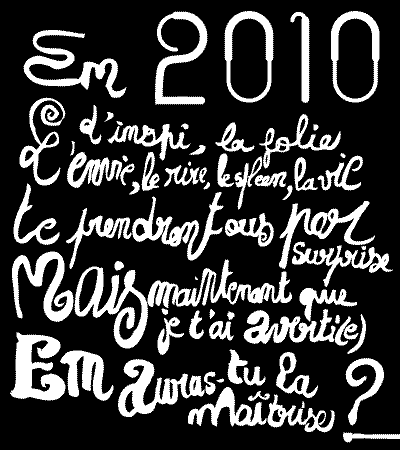 Em 2010
d'inspi, la folie
L'envie, le rire, le spleen, la vie
te prendront tous par
surprise
Mais maintenant que
je t'ai averti(e)
Em auras-tu la
Maîtrise ?